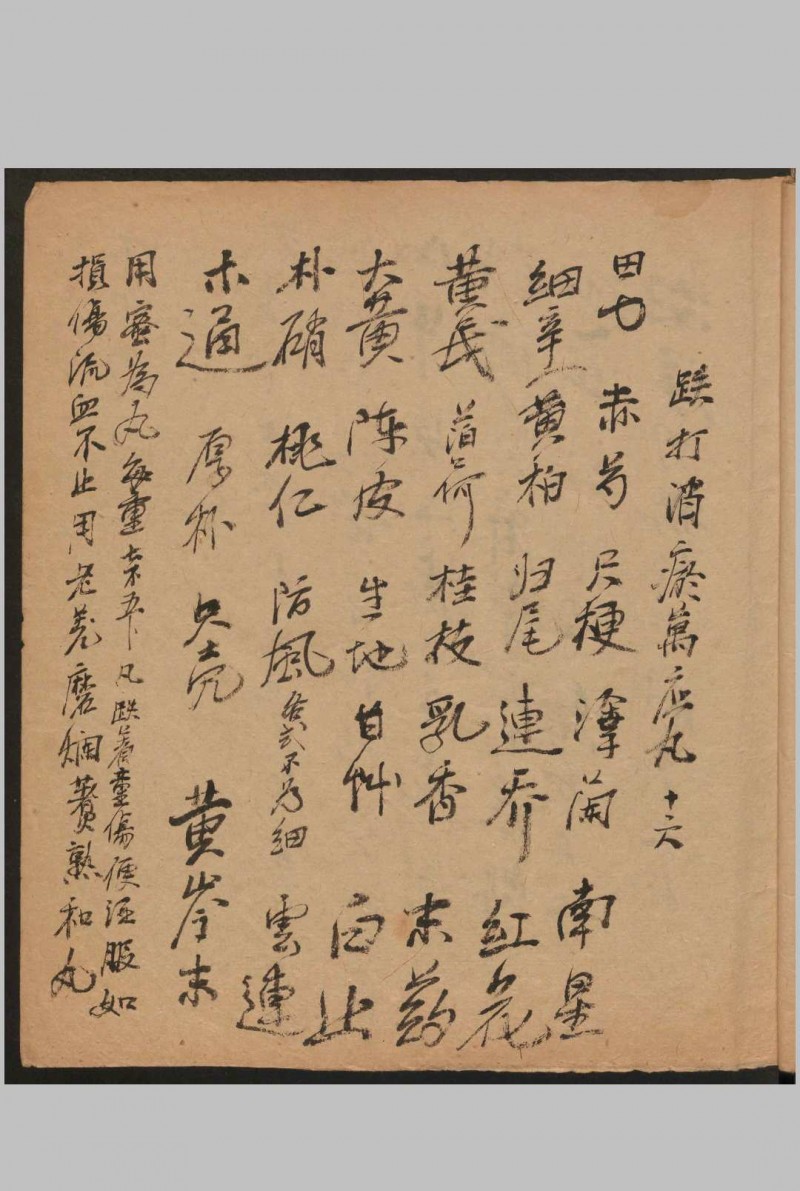 跌打消瘀萬应丸 十六
田七 赤芍 只梗 澤蘭 南星
細辛 黄柏 归尾 連乔 紅花
黄芪 薄荷 桂枝 乳香 末药
大黄 陈皮 生地 甘艸 白止
朴硝 桃仁 防風 各弍不為細 雲連
木通 厚朴 只壳 黄岑 末
用蜜為丸每重 凡跌着重傷便酒服如
損傷流血不止用老羌磨烟賛熟和丸